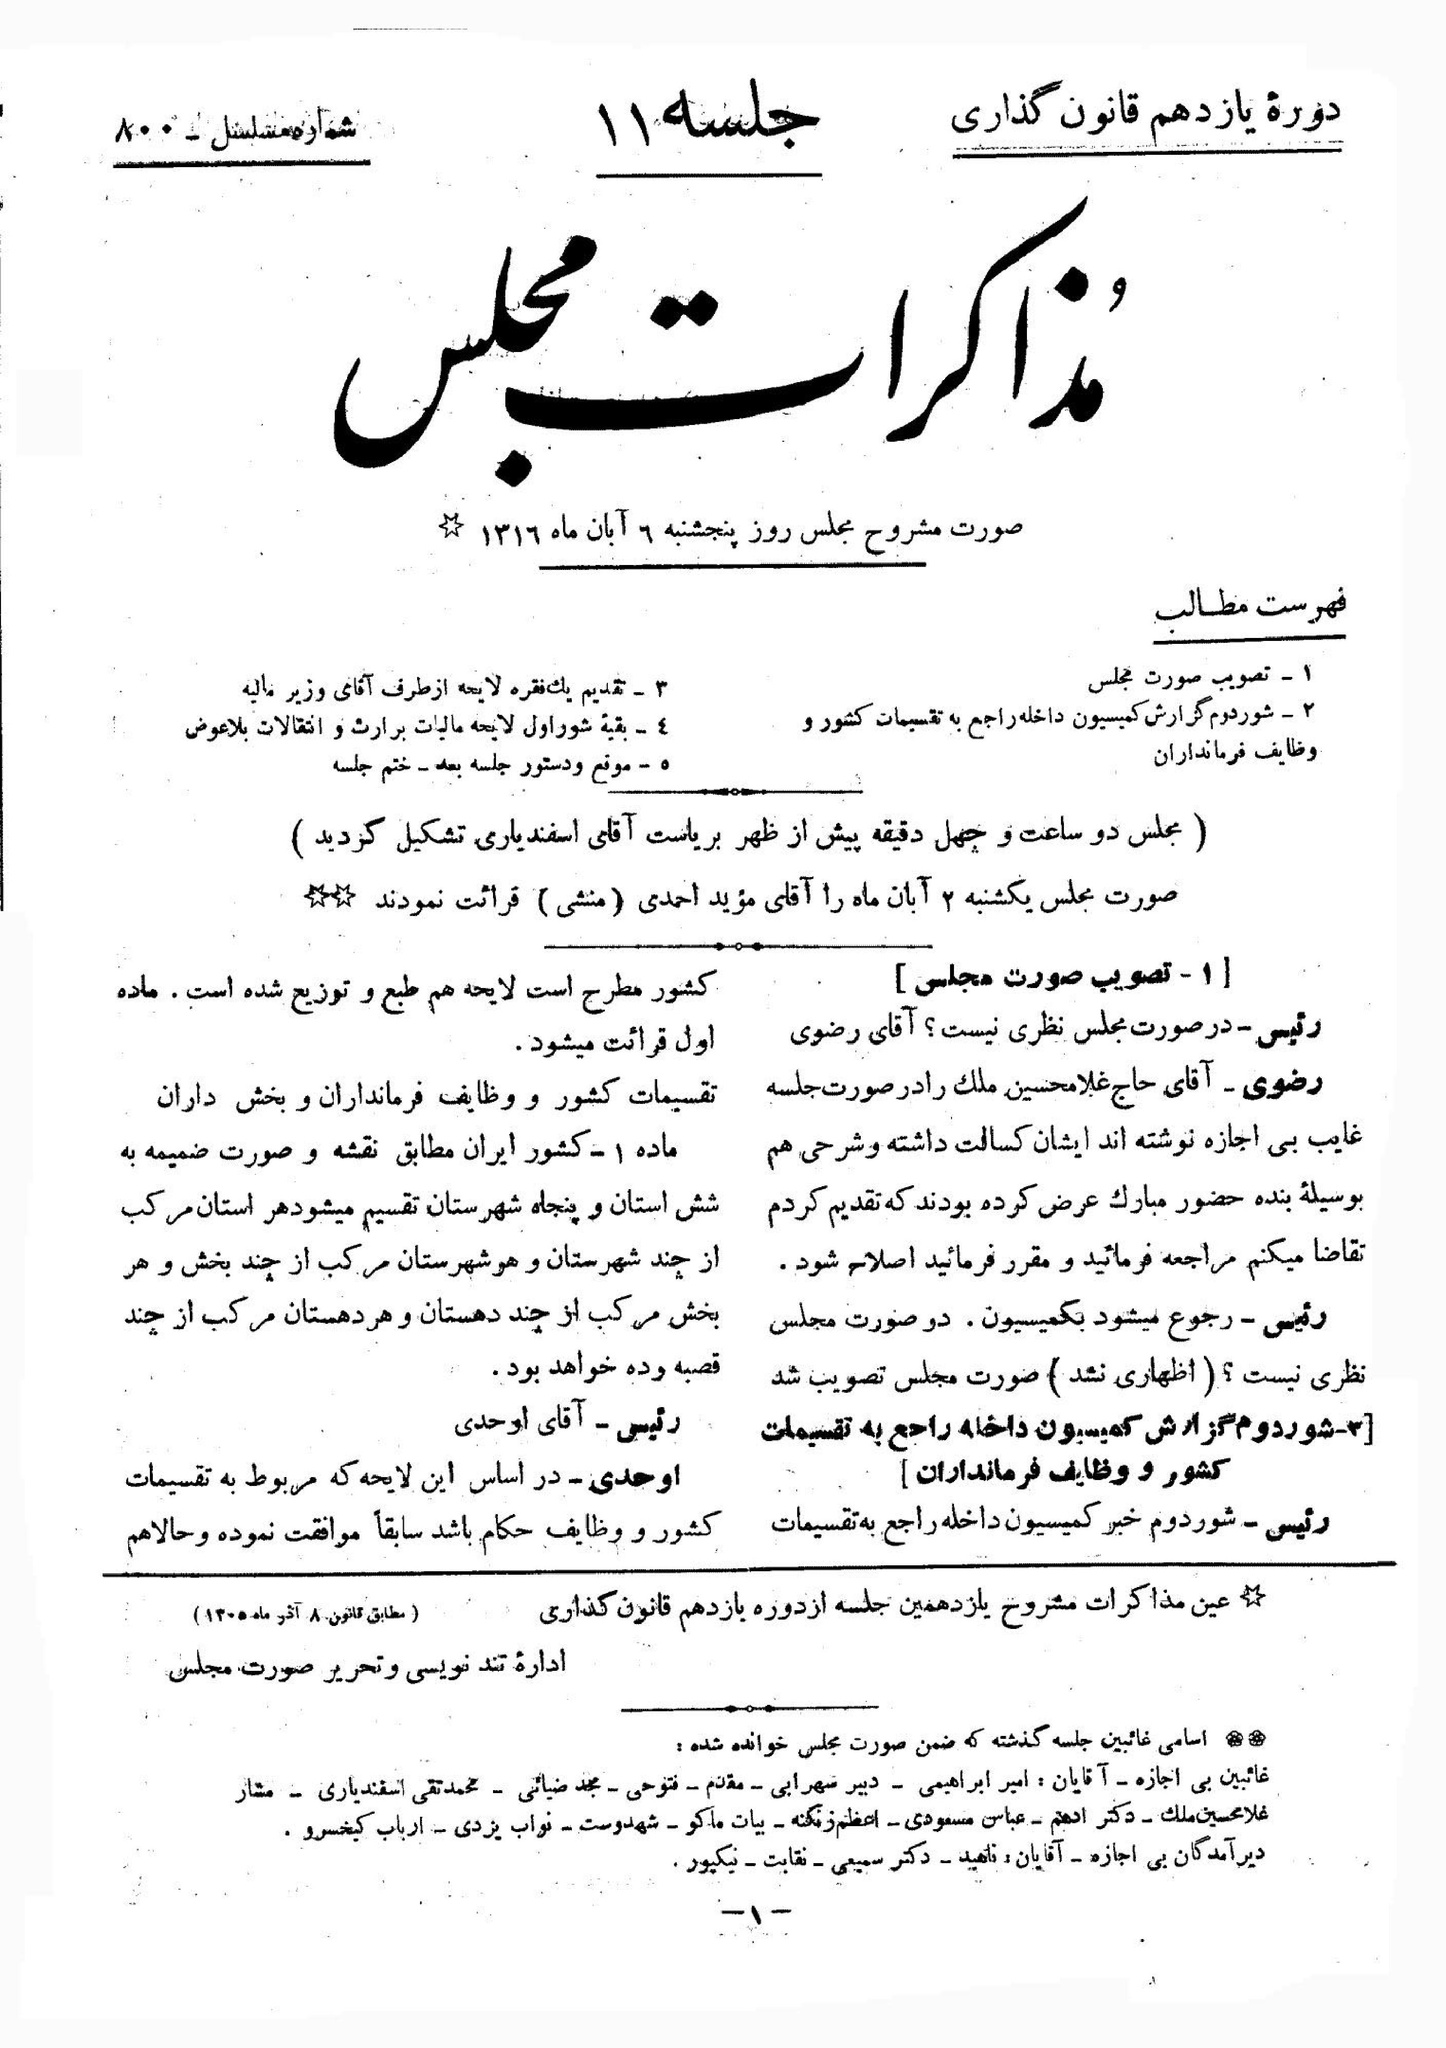 دورهٔ یازدهم قانون گذاری
جلسه ۱۱
شماره مسلسل ـ ۸۰۰
مُذاکرات مجلس
صورت مشروح مجلس روز پنجشنبه ٦ آبان ماه ١٣١٦ ☆
فهرست مطـالب
١ ـ تصویب صورت مجلس
٢ ـ شوردوم گزارش کمیسیون داخله راجع به تقسیمات کشور و
وظایف فرمانداران
٣ ـ تقدیم یك فقره لایحه ازطرف آقای وزیر مالیه
٤ ـ بقیهٔ شوراول لایحه مالیات برارث و انتقالات بلاعوض
٥ - موقع ودستور جلسه بعد ـ ختم جلسه
( مجلس دو ساعت و چهل دقیقه پیش از ظهر بریاست آقای اسفندیاری تشکیل گردید )
صورت مجلس یکشنبه ٢ آبان ماه را آقای مؤید احمدی (منشی) قرائت نمودند ☆☆
[ ١ - تصویب صورت مجلس ]
رئیس ـ درصورت مجلس نظری نیست؟ آقای رضوی
رضوی ـ آقای حاج غلامحسین ملك رادرصورت جلسه
غایب بی اجازه نوشته اند ایشان کسالت داشته وشرحی هم
بوسیلهٔ بنده حضور مبارك عرض کرده بودند که تقدیم کردم
تقاضا میکنم مراجعه فرمائید و مقرر فرمائید اصلاح شود .
رئیس ـ رجوع میشود بکمیسیون . دو صورت مجلس
نظری نیست ؟ ( اظهاری نشد ) صورت مجلس تصویب شد
[٢-شوردوم گزارش کمیسیون داخله راجع به تقسیمات
کشور و وظایف فرمانداران ]
رئیس ـ شوردوم خبر کمیسیون داخله راجع به تقسیمات
کشور مطرح است لایحه هم طبع و توزیع شده است . ماده
اول قرائت میشود .
تقسیمات کشور و وظایف فرمانداران و بخش داران
ماده ١ ـ کشور ایران مطابق نقشه و صورت ضمیمه به
شش استان و پنجاه شهرستان تقسیم میشودهر استان مرکب
از چند شهرستان و هوشهرستان مرکب از چند بخش و هر
بخش مرکب از چند دهستان و هردهستان مرکب از چند
قصبه وده خواهد بود .
رئیس ـ آقای اوحدی
اوحدی ـ در اساس این لایحه که مربوط به تقسیمات
کشور و وظایف حکام باشد سابقاً موافقت نموده وحالاهم
☆ عین مذاکرات مشروح یازدهمین جلسه ازدوره یازدهم قانون گذاری
( مطابق قانون ٨ آذر ماه ١٣٠٥ )
ادارهٔ تند نویسی وتحریر صورت مجلس
❀❀ اسامی غائبین جلسه گذشته که ضمن صورت مجلس خوانده شده :
غائبین بی اجازه ـ آقایان : امیر ابراهیمی ـ دبیر سهرابی ـ مقدم ـ فتوحی ـ مجد ضیائی ـ محمدتقی اسفندیاری ـ مشار
غلامحسین ملك ـ دکتر ادهم ـ عباس مسعودی ـ اعظم زنگنه ـ بیات ماکو ـ شهدوست ـ نواب یزدی ـ ارباب کیخسرو .
دیرآمدگان بی اجازه ـ آقایان : ناهید ـ دکتر سمیعی ـ نقابت ـ نیکپور .
-١-